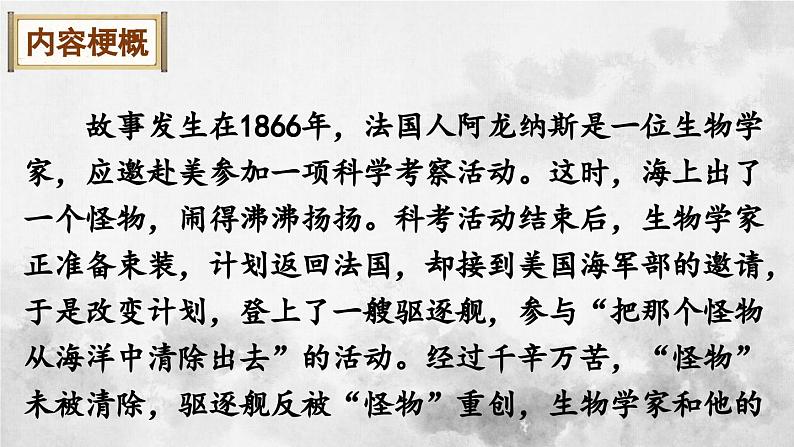 内容梗概
故事发生在1866年，法国人阿龙纳斯是一位生物学
家，应邀赴美参加一项科学考察活动。这时，海上出了
一个怪物，闹得沸沸扬扬。科考活动结束后，生物学家
正准备束装，计划返回法国，却接到美国海军部的邀请，
于是改变计划，登上了一艘驱逐舰，参与“把那个怪物
从海洋中清除出去”的活动。经过千辛万苦，“怪物”
未被清除，驱逐舰反被“怪物”重创，生物学家和他的